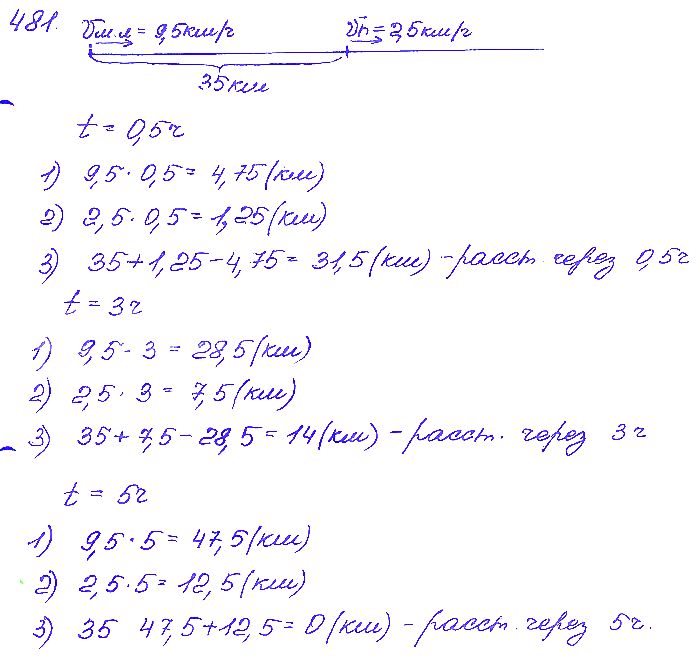 481. Vм.л = 9,5км/ч Vп = 2,5км/ч
35км
t = 0,5ч
1) 9,5 · 0,5 = 4,75(км)
2) 2,5 · 0,5 = 1,25(км)
3) 35+1,25-4,75= 31,5(км) - расст. через 0,5ч
t = 3ч
1) 9,5 · 3 = 28,5(км)
2) 2,5 · 3 = 7,5(км)
3) 35+7,5-28,5=14(км) - расст. через 3ч
t = 5ч
1) 9,5·5=47,5(км)
2) 2,5·5=12,5(км)
3) 35 47,5+12,5=0(км) - расст. через 5ч.